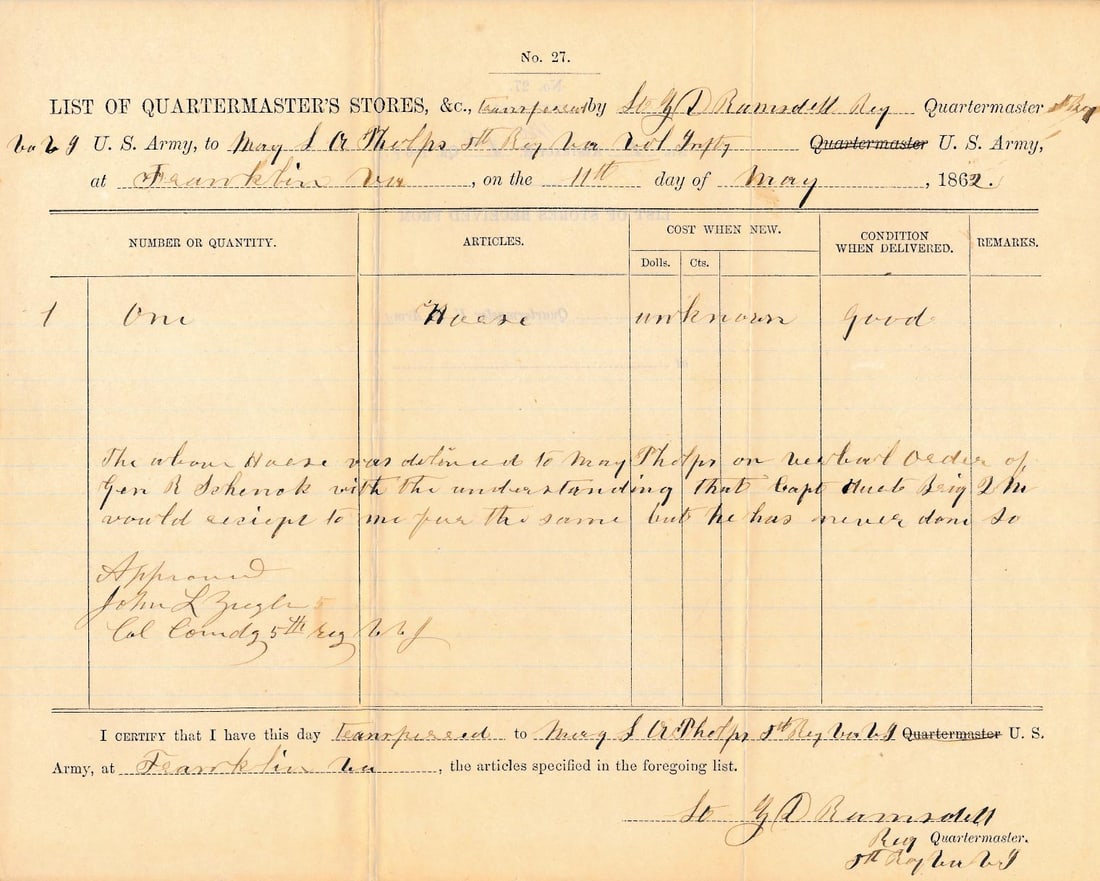 No. 27.
LIST OF QUARTERMASTER'S STORES, &c., transfered by Lt Z D Ramsdell Reg Quartermaster 5th Reg
Va V I U. S. Army, to Maj L A Phelps 5th Reg Va Vol Infty Quartermaster U. S. Army,
at Franklin Va, on the 11th day of May, 1862.
NUMBER OR QUANTITY. ARTICLES. COST WHEN NEW. CONDITION WHEN DELIVERED. REMARKS.
Dolls. Cts.
1 One Horse unknown good
The above Horse was delivered to Maj Phelps on verbal order of
Gen R Schenck with the understanding that Capt Brig Q M
would reciept to me for the same but he has never done so
Approved
John L Zeigler
Col Comdg 5th Reg V V I
I CERTIFY that I have this day transfered to Maj L A Phelps 5th Reg Va V I Quartermaster U. S.
Army, at Franklin Va, the articles specified in the foregoing list.
Lt Z D Ramsdell
Reg Quartermaster.
5th Reg Va V I